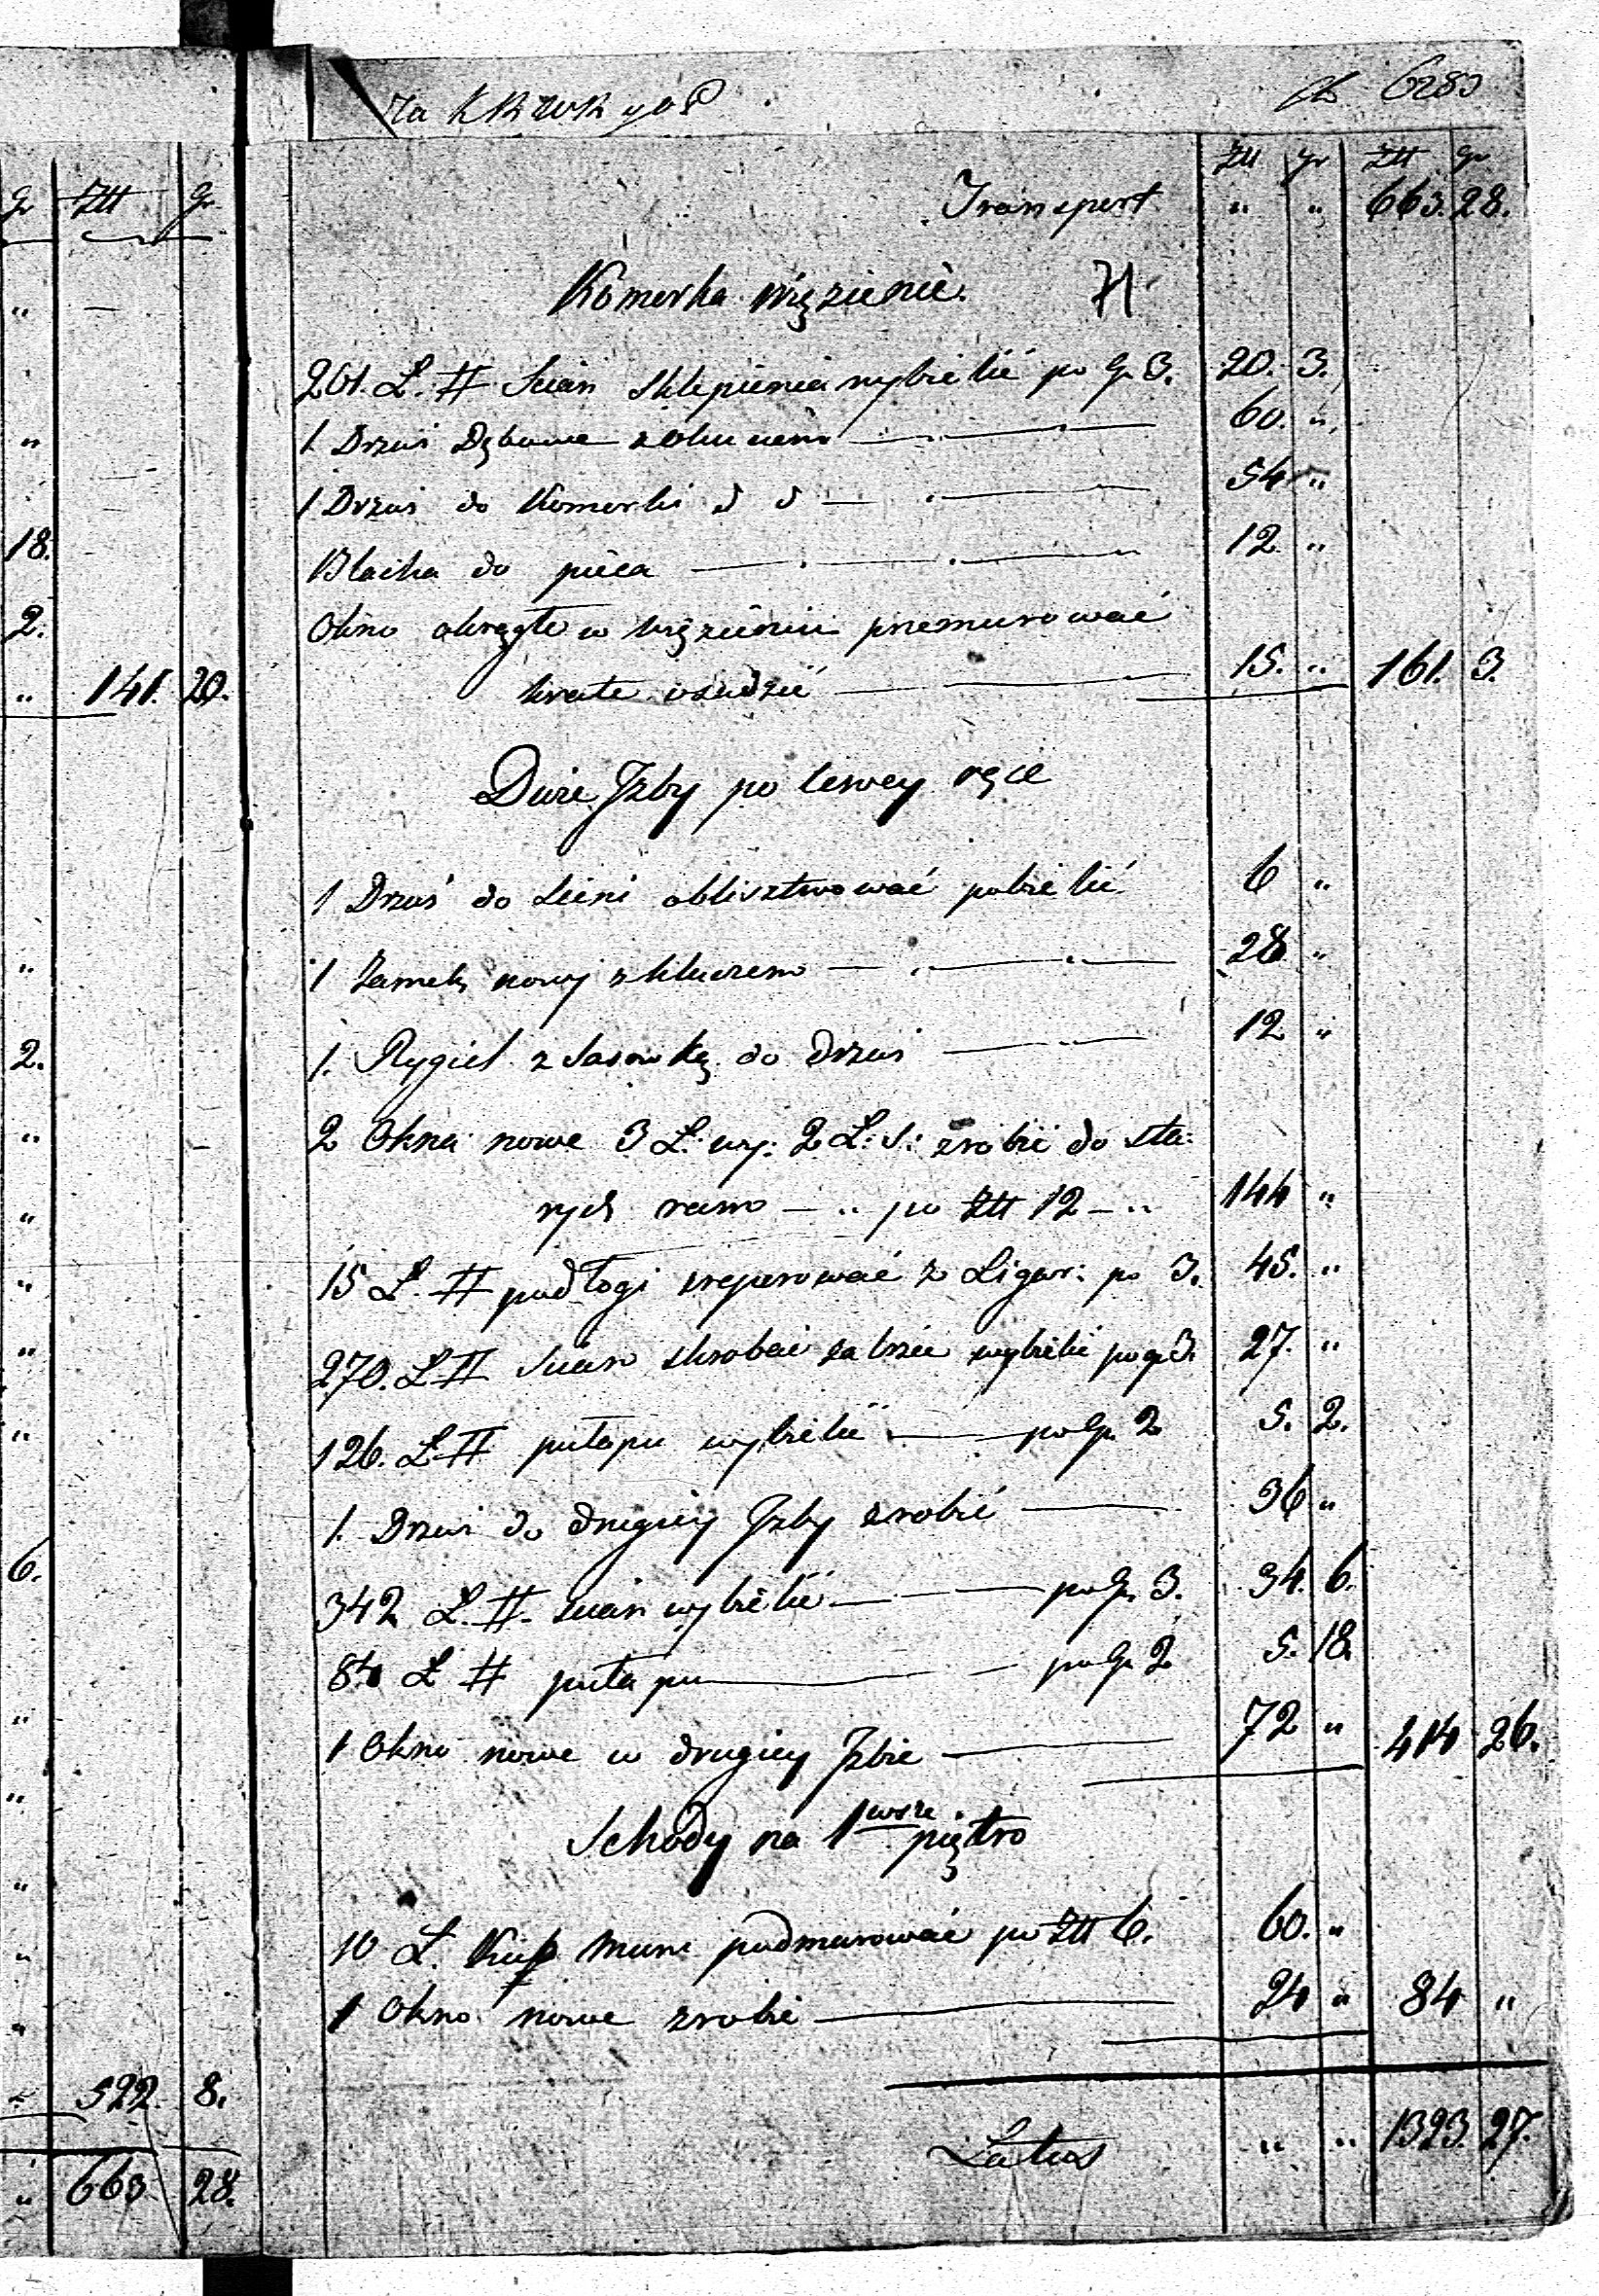 gr Złł gr
"
"
18.
2.
" 141. 20.
"
2.
"
"
"
"
"
6.
"
"
"
"
"
" 522. 8.
" 663 28.
Złł gr Złł gr
Transport " " 663. 28.
Komorka więzienie. 71
201. Ł. # Scian sklepienia wybielić po gr 3. 20. 3.
1 Drzwi Dębowe z okuciem — 60. "
1 Drzwi do Komorki d d — 54 "
Blacha do pieca — 12 "
Okno okrągłe w więzieniu przemurować
krate osadzić — 15. " 161. 3.
Dwie Jzby po lewey ręce
1 Drzwi do Sieni oblisztwować pobielić 6 "
1 Zamek nowy z kluczem — 28 "
1. Rygiel z Zasówką do drzwi — 12 "
2 Okna nowe 3 Ł: wy: 2 Ł: s: zrobić do sta:
rych ram — " po Złł 12 — " 144 "
15 Ł. # podłogi zreperować z Ligar: po 3. 45. "
270. Ł # Scian skrobać zatrzeć wybielić po gr 3. 27. "
126. Ł # pułapu wybielić — po gr. 2 5. 2.
1. Drzwi do drugiey Jzby zrobić — 36 "
342 Ł. #. Scian wybielić — po gr. 3. 34. 6.
84 Ł # pułapu — po gr 2 5. 18.
1 Okno nowe w drugiey Jzbie — 72 " 414 26.
Schody na 1wsze piętro
10 Ł. Kub Muru podmurować po Złł 6. 60. "
1 Okno nowe zrobić — 24 " 84 "
Latus " " 1323. 27.